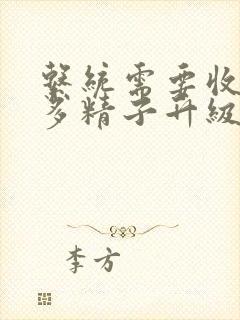 繫統需要收
多精子升級
李方